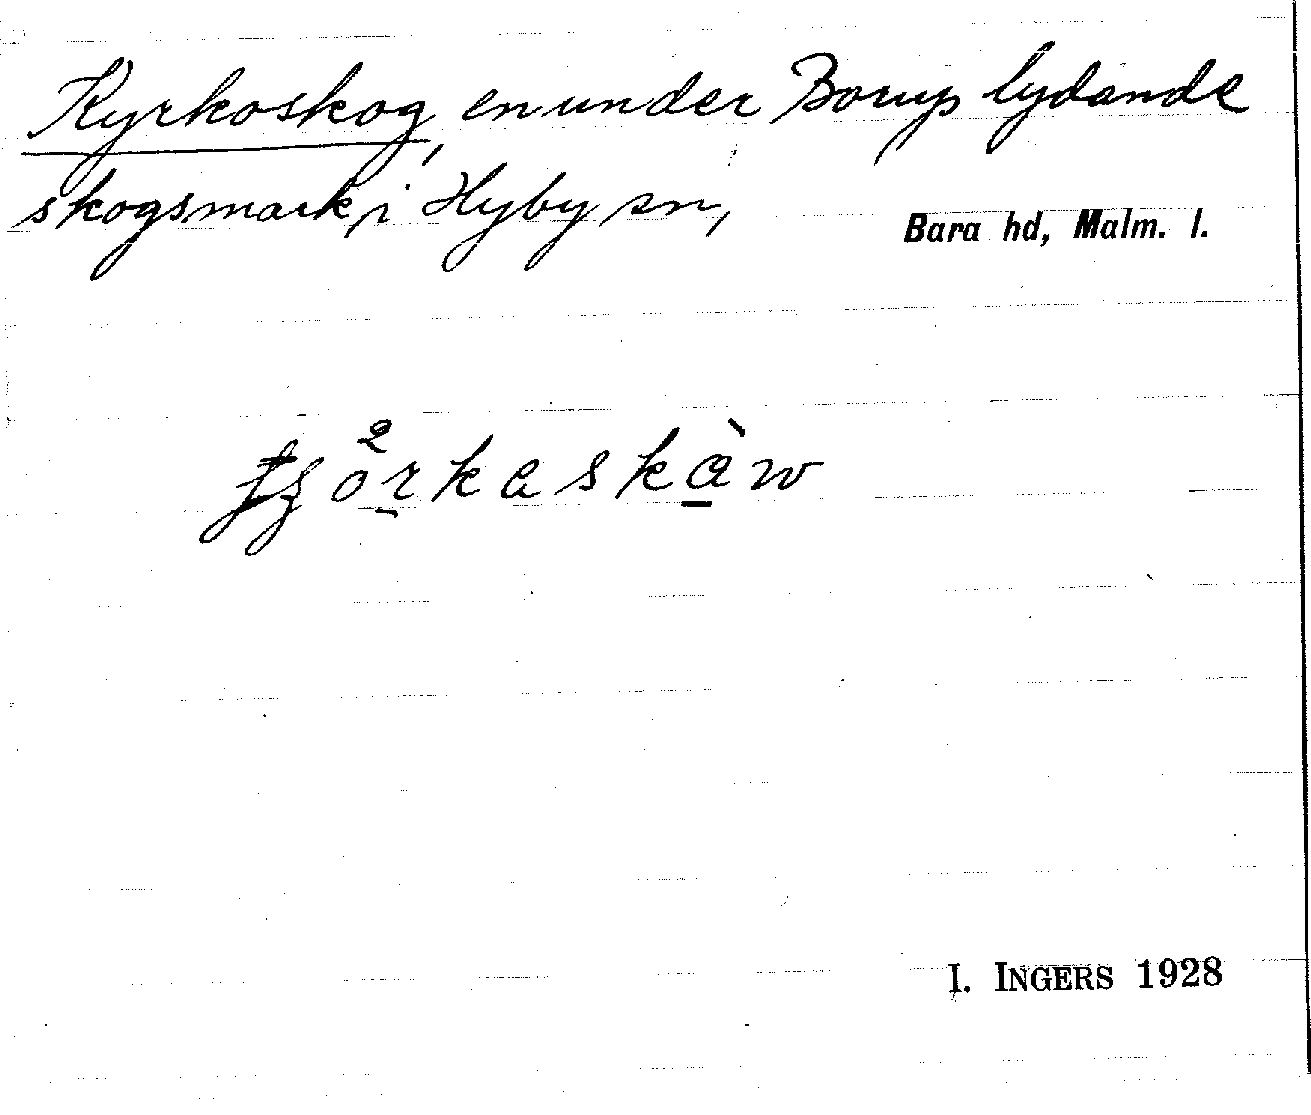 Kyrkoskog, en under Borup lydande
skogsmark i Hyby sn,
Bara hd, Malm. l.
I. INGERS 1928